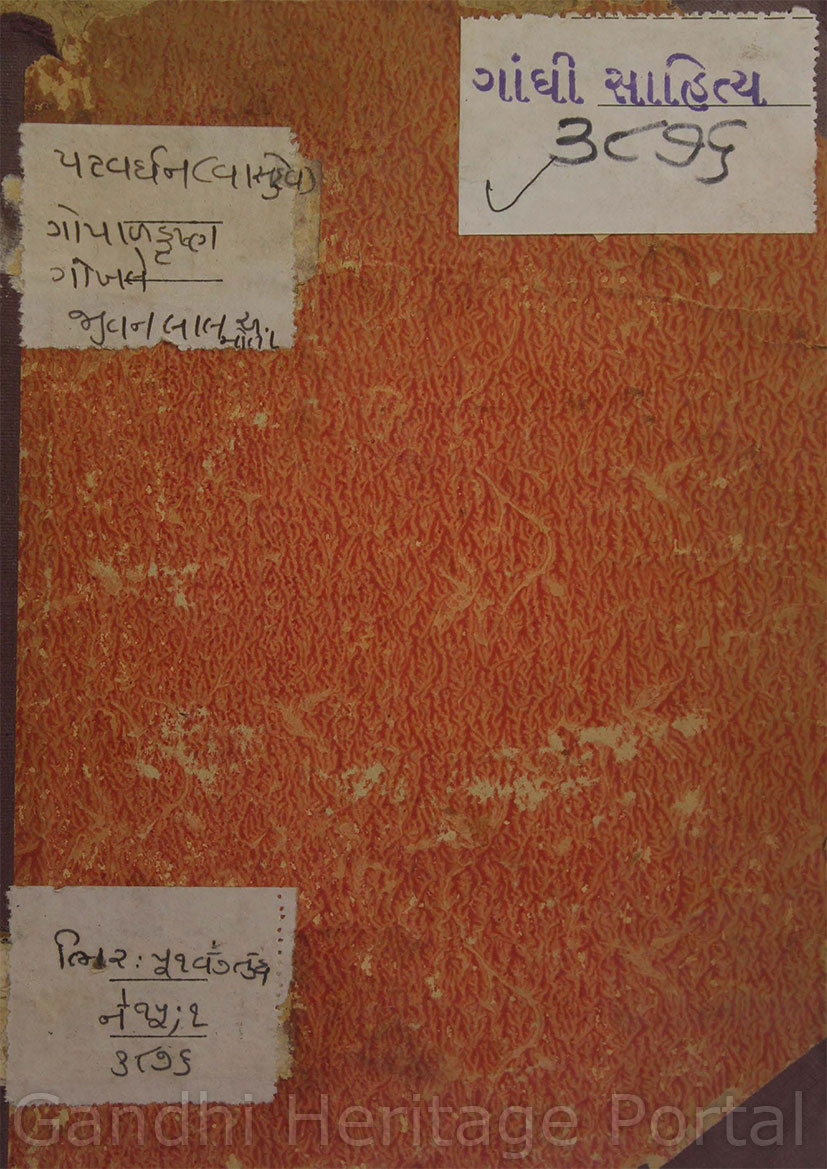 ગાંધી સાહિત્ય
૩૮૭૬
પટવર્ધન (વાસુદેવ)
ગોપાળકૃષ્ણ
ગોખલે
જીવનલાલ
નં ૧૫;૧
૩૮૭૬
Gandhi Heritage Portal